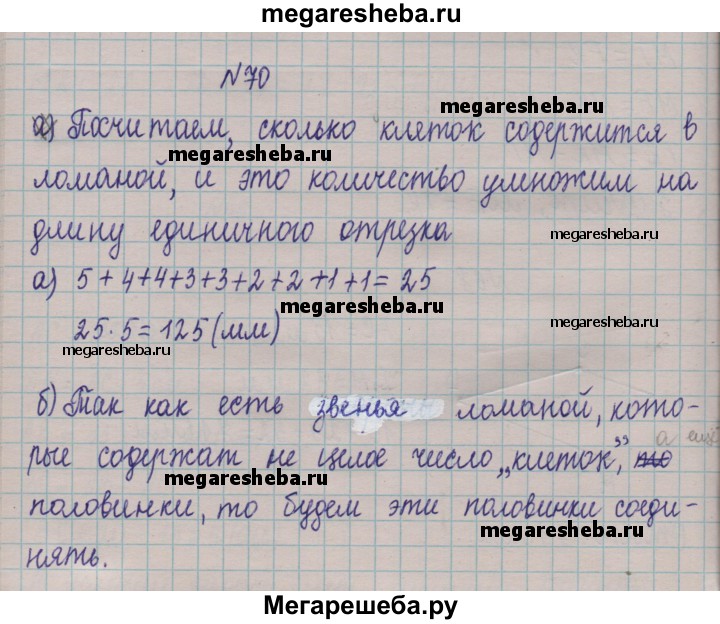 megaresheba.ru
№70
а) Посчитаем, сколько клеток содержится в
megaresheba.ru
megaresheba.ru
ломаной, и это количество умножим на
длину единичного отрезка
megaresheba.ru
а) 5+4+4+3+3+2+2+1+1=25
megaresheba.ru
25·5=125(мм)
megaresheba.ru
megaresheba.ru
б) Так как есть звенья ломаной, кото-
а ещё
рые содержат не целое число „клеток",
megaresheba.ru
половинки, то будем эти половинки соеди-
megaresheba.ru
нять.
Мегарешеба.ру